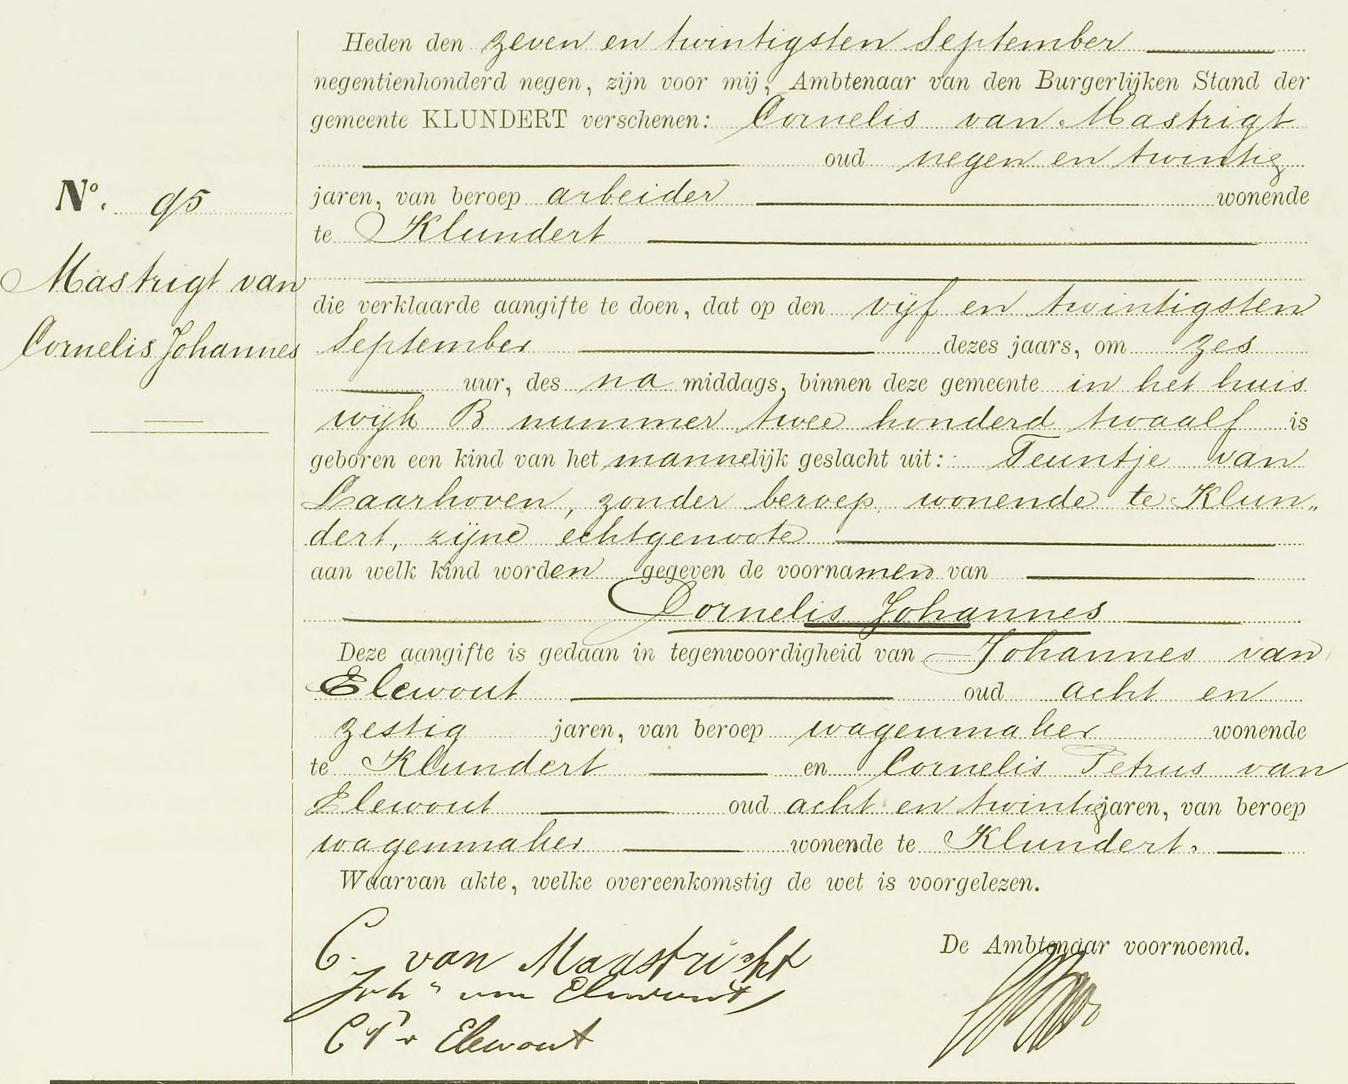 Heden den zeven en twintigsten September
negentienhonderd negen, zijn voor mij, Ambtenaar van den Burgerlijken Stand der
gemeente KLUNDERT verschenen: Cornelis van Mastrigt
oud negen en twintig
No. 95
jaren, van beroep arbeider wonende
te Klundert
Mastrigt van
Cornelis Johannes
die verklaarde aangifte te doen, dat op den vijf en twintigsten
September dezes jaars, om zes
uur, des na middags, binnen deze gemeente in het huis
wijk B nummer twee honderd twaalf is
geboren een kind van het mannelijk geslacht uit: Teuntje van
Laarhoven, zonder beroep, wonende te Klun„
dert, zijne echtgenoote
aan welk kind worden gegeven de voornamen van
Cornelis Johannes
Deze aangifte is gedaan in tegenwoordigheid van Johannes van
Elewout oud acht en
zestig jaren, van beroep wagenmaker wonende
te Klundert en Cornelis Petrus van
Elewout oud acht en twintig jaren, van beroep
wagenmaker wonende te Klundert.
Waarvan akte, welke overeenkomstig de wet is voorgelezen.
C. van Maastricht
De Ambtenaar voornoemd.
Johs van Elewout
C P v Elewout